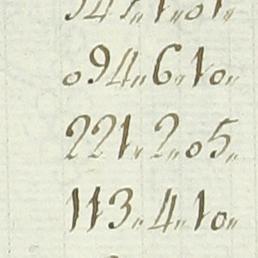 094〃6〃10〃
221〃2〃05〃
113〃4〃10〃